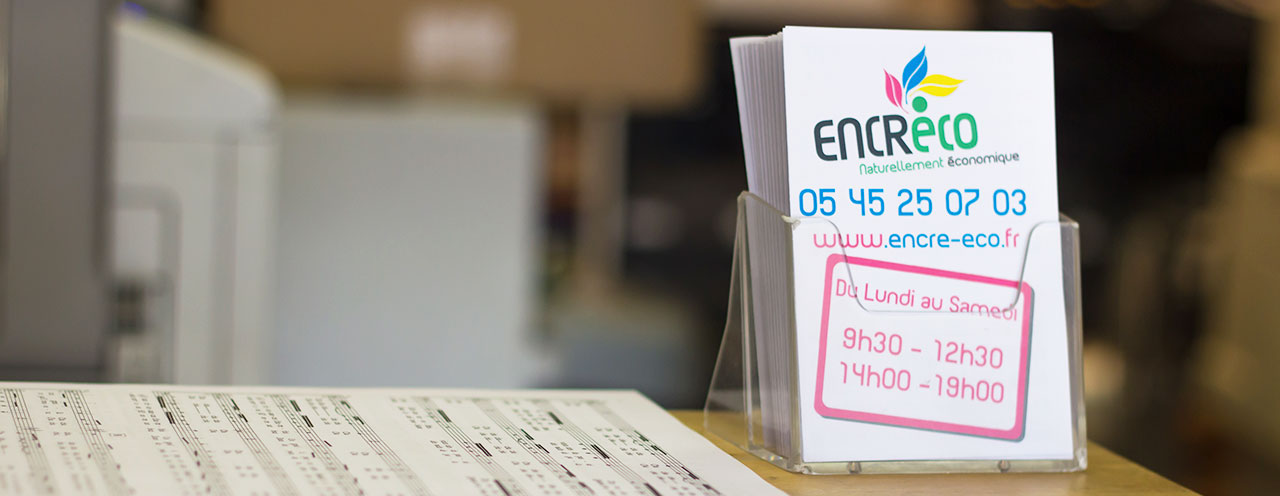 ENCRéCO
Naturellement économique
05 45 25 07 03
www.encre-eco.fr
Du Lundi au Samedi
9h30 - 12h30
14h00 - 19h00